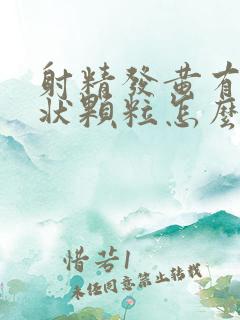 射精發黃有
狀顆粒怎麼
惜若1
未经同意禁止转载